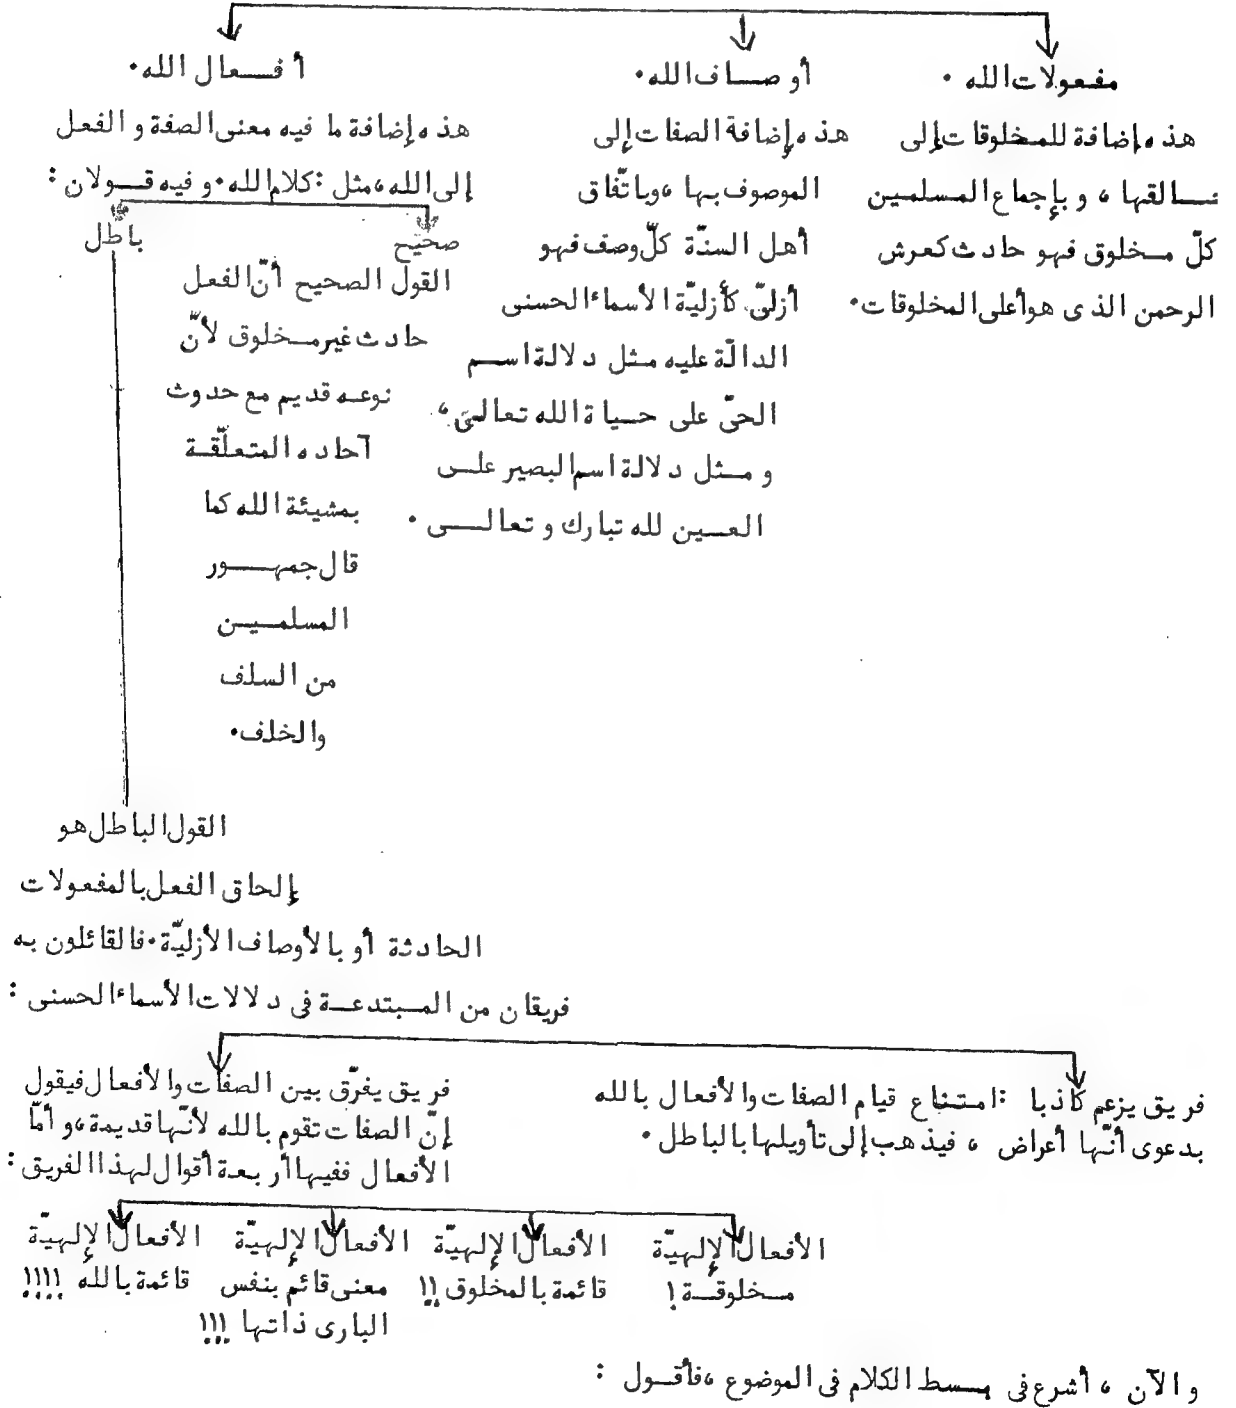 مفعولات الله .
هذه إضافة للمخلوقات إلى
خالقها ، وبإجماع المسلمين
كلّ مخلوق فهو حادث كعرش
الرحمن الذى هو أعلى المخلوقات .
أوصاف الله .
هذه إضافة الصفات إلى
الموصوف بها ، وباتّفاق
أهل السنّة كلّ وصف فهو
أزلىّ كأزليّة الأسماء الحسنى
الدالّة عليه مثل دلالة اسم
الحىّ على حياة الله تعالى ،
ومثل دلالة اسم البصير على
العين لله تبارك وتعالى .
أفعال الله .
هذه إضافة ما فيه معنى الصفة والفعل
إلى الله ، مثل : كلام الله . وفيه قولان :
صحيح
القول الصحيح أنّ الفعل
حادث غير مخلوق لأنّ
نوعه قديم مع حدوث
آحاده المتعلّقة
بمشيئة الله كما
قال جمهور
المسلمين
من السلف
والخلف .
باطل
القول الباطل هو
إلحاق الفعل بالمفعولات
الحادثة أو بالأوصاف الأزليّة . فالقائلون به
فريقان من المبتدعة فى دلالات الأسماء الحسنى :
فريق يزعم كاذبا : امتناع قيام الصفات والأفعال بالله
بدعوى أنّها أعراض ، فيذهب إلى تأويلها بالباطل .
فريق يفرّق بين الصفات والأفعال فيقول
إنّ الصفات تقوم بالله لأنّها قديمة ، وأمّا
الأفعال ففيها أربعة أقوال لهذا الفريق :
الأفعال الإلهيّة
مخلوقة !
الأفعال الإلهيّة
قائمة بالمخلوق !!
الأفعال الإلهيّة
معنى قائم بنفس
البارى ذاتها !!!
الأفعال الإلهيّة
قائمة بالله !!!!
والآن ، أشرع فى بسط الكلام فى الموضوع ، فأقول :